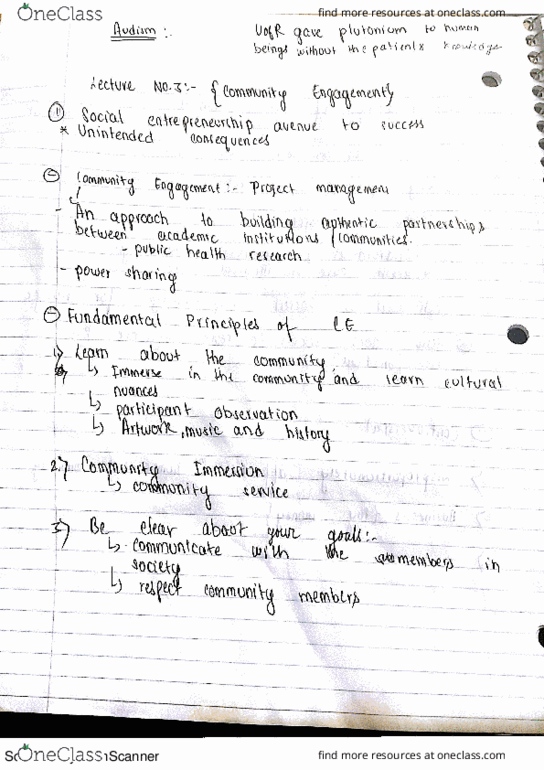 OneClass
find more resources at oneclass.com
Audism :-
UofR gave plutonium to human
beings without the patients knowledge
Lecture No.3:- {Community Engagement}
① Social entrepreneurship avenue to success
* Unintended consequences
Community Engagement:- Project management
- An approach to building authentic partnerships
between academic institutions / communities.
- public health research
- power sharing
Fundamental Principles of CE
1) Learn about the community
↳ Immerse in the community and learn cultural
nuances
↳ participant observation
↳ Artwork, music and history
2.) Community Immersion
↳ community service
3) Be clear about your goals:-
↳ communicate with the members in
society
↳ respect community members
OneClass
Scanner
find more resources at oneclass.com